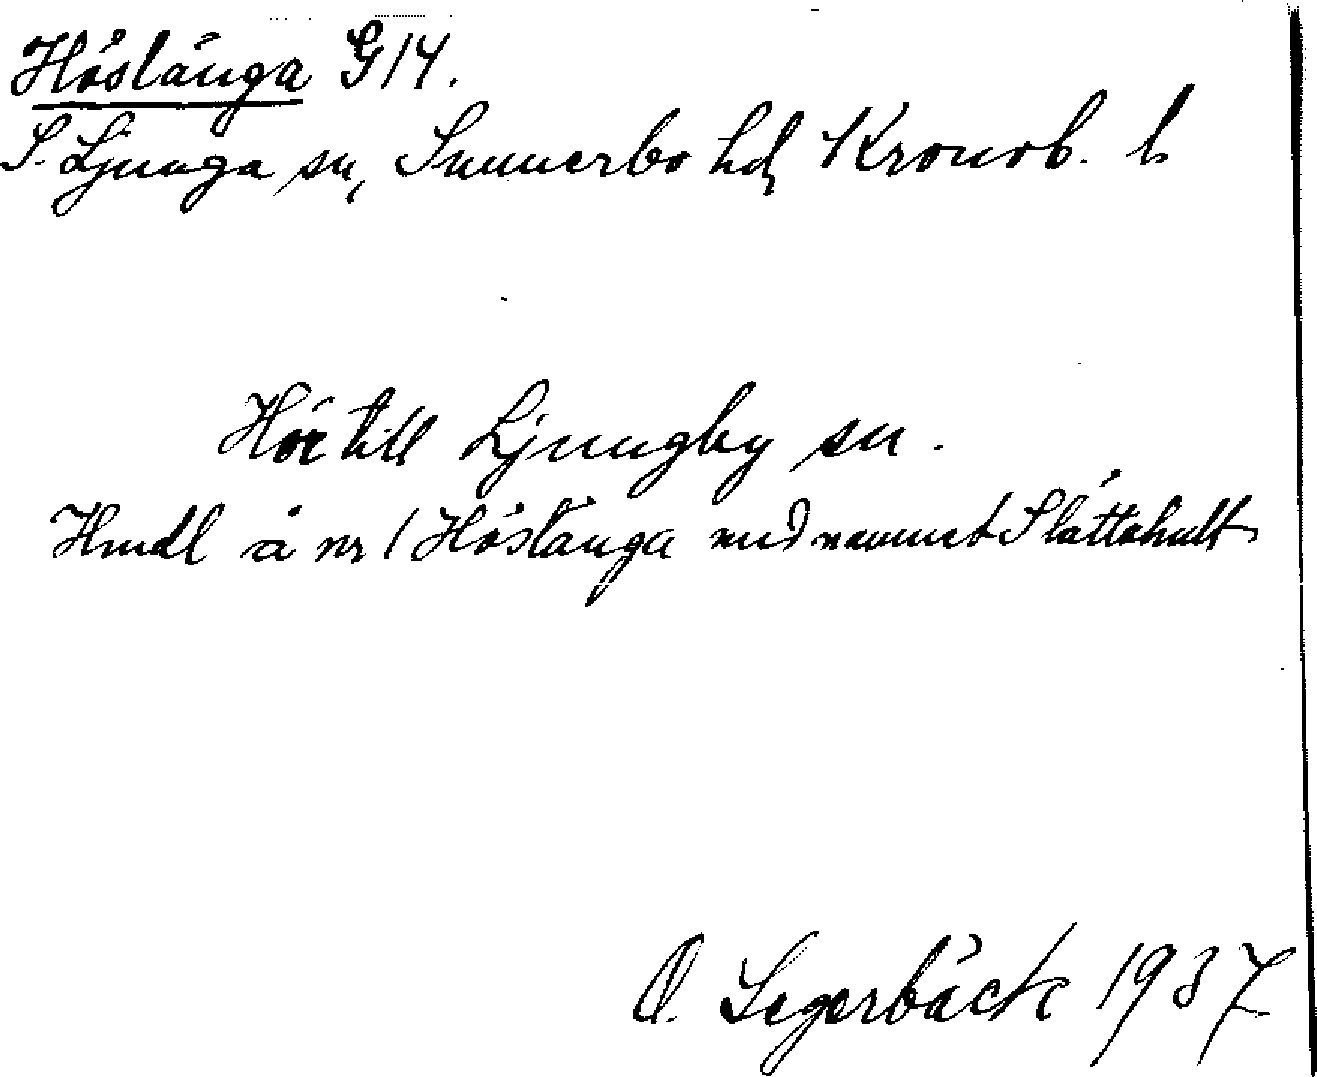 Höslänga G14.
S. Ljunga sn, Sunnerbo hd, Kronob. l.
Hör till Ljungby sn.
Hmdl å nr 1 Höslänga med namnet Slättahult
O. Segerbäck 1937